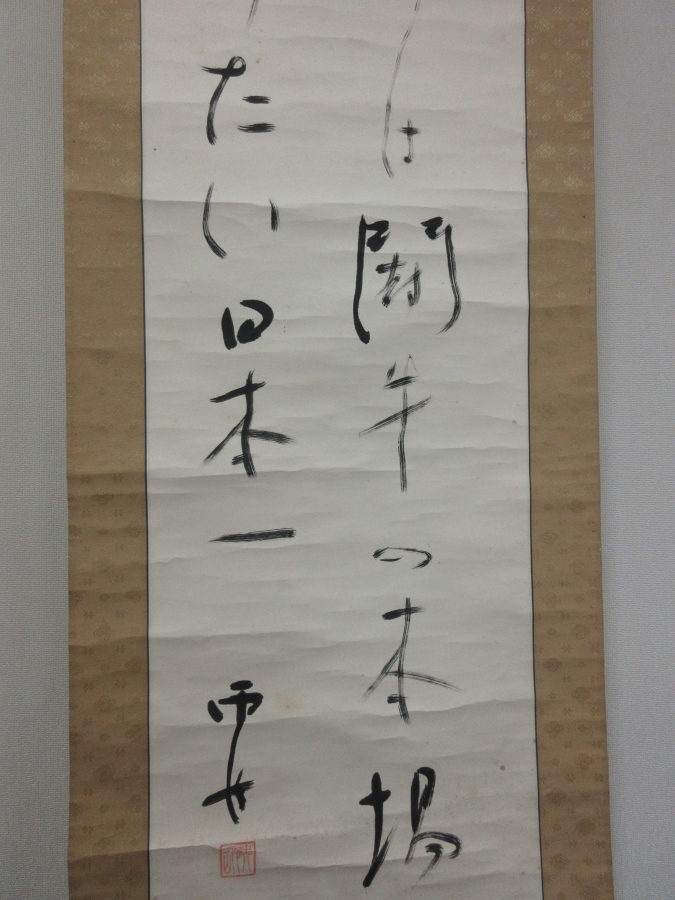 は闘牛の本場
たい日本一
雨情